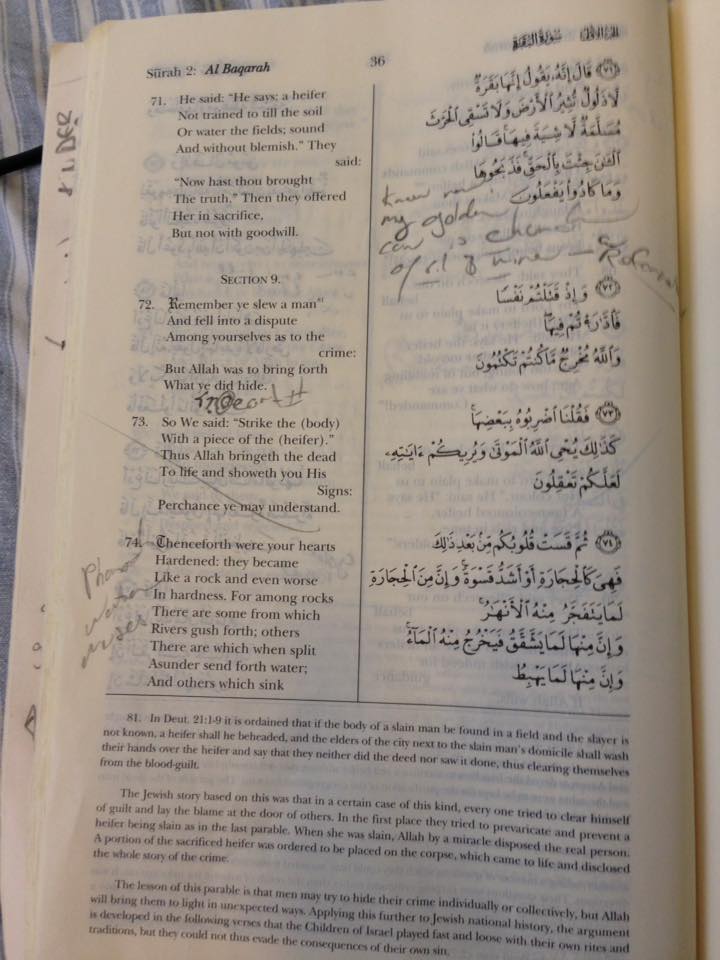 Sūrah 2: Al Baqarah
36
سورة البقرة
71. He said: "He says: a heifer
Not trained to till the soil
Or water the fields; sound
And without blemish." They
said:
"Now hast thou brought
The truth." Then they offered
Her in sacrifice,
But not with goodwill.
SECTION 9.
72. Remember ye slew a man⁸¹
And fell into a dispute
Among yourselves as to the
crime:
But Allah was to bring forth
What ye did hide.
73. So We said: "Strike the (body)
With a piece of the (heifer)."
Thus Allah bringeth the dead
To life and showeth you His
Signs:
Perchance ye may understand.
74. Thenceforth were your hearts
Hardened: they became
Like a rock and even worse
In hardness. For among rocks
There are some from which
Rivers gush forth; others
There are which when split
Asunder send forth water;
And others which sink
﴿٧١﴾ قَالَ إِنَّهُ يَقُولُ إِنَّهَا بَقَرَةٌ
لَا ذَلُولٌ تُثِيرُ الْأَرْضَ وَلَا تَسْقِي الْحَرْثَ
مُسَلَّمَةٌ لَا شِيَةَ فِيهَا قَالُوا
الْآنَ جِئْتَ بِالْحَقِّ فَذَبَحُوهَا
وَمَا كَادُوا يَفْعَلُونَ
my golden
﴿٧٢﴾ وَإِذْ قَتَلْتُمْ نَفْسًا
فَادَّارَأْتُمْ فِيهَا
وَاللَّهُ مُخْرِجٌ مَا كُنْتُمْ تَكْتُمُونَ
﴿٧٣﴾ فَقُلْنَا اضْرِبُوهُ بِبَعْضِهَا
كَذَلِكَ يُحْيِي اللَّهُ الْمَوْتَى وَيُرِيكُمْ ءَايَتِهِ
لَعَلَّكُمْ تَعْقِلُونَ
﴿٧٤﴾ ثُمَّ قَسَتْ قُلُوبُكُمْ مِنْ بَعْدِ ذَلِكَ
فَهِيَ كَالْحِجَارَةِ أَوْ أَشَدُّ قَسْوَةً وَإِنَّ مِنَ الْحِجَارَةِ
لَمَا يَتَفَجَّرُ مِنْهُ الْأَنْهَرُ
وَإِنَّ مِنْهَا لَمَا يَشَّقَّقُ فَيَخْرُجُ مِنْهُ الْمَاءُ
وَإِنَّ مِنْهَا لَمَا يَهْبِطُ
81. In Deut. 21:1-9 it is ordained that if the body of a slain man be found in a field and the slayer is
not known, a heifer shall he beheaded, and the elders of the city next to the slain man's domicile shall wash
their hands over the heifer and say that they neither did the deed nor saw it done, thus clearing themselves
from the blood-guilt.
The Jewish story based on this was that in a certain case of this kind, every one tried to clear himself
of guilt and lay the blame at the door of others. In the first place they tried to prevaricate and prevent a
heifer being slain as in the last parable. When she was slain, Allah by a miracle disposed the real person.
A portion of the sacrificed heifer was ordered to be placed on the corpse, which came to life and disclosed
the whole story of the crime.
The lesson of this parable is that men may try to hide their crime individually or collectively, but Allah
will bring them to light in unexpected ways. Applying this further to Jewish national history, the argument
is developed in the following verses that the Children of Israel played fast and loose with their own rites and
traditions, but they could not thus evade the consequences of their own sin.